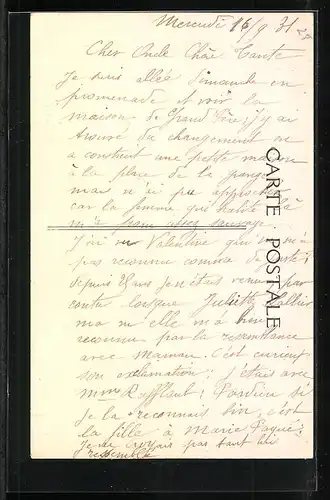 Mercredi 16/9 31
Cher Oncle Chère Tante
Je suis allée dimanche en
promenade et voir la
maison de Grand Père, j'y ai
trouvé du changement on
a construit une petite maison
à la place de la grange
mais n'ai pu approcher
car la femme qui habite là
m'a
J'ai vu Valentine qui ne m'a
pas reconnue comme de juste
depuis ans je n'étais venue par
contre lorsque Juliette
m'a vu elle m'a bien
reconnue par la ressemblance
avec Maman. C'est curieux
son exclamation: j'étais avec
Mme Rafflaut; Pardieu si
je la reconnais bin, c'est
la fille à Marie
Je ne croyais pas tant lui
ressembler
CARTE POSTALE